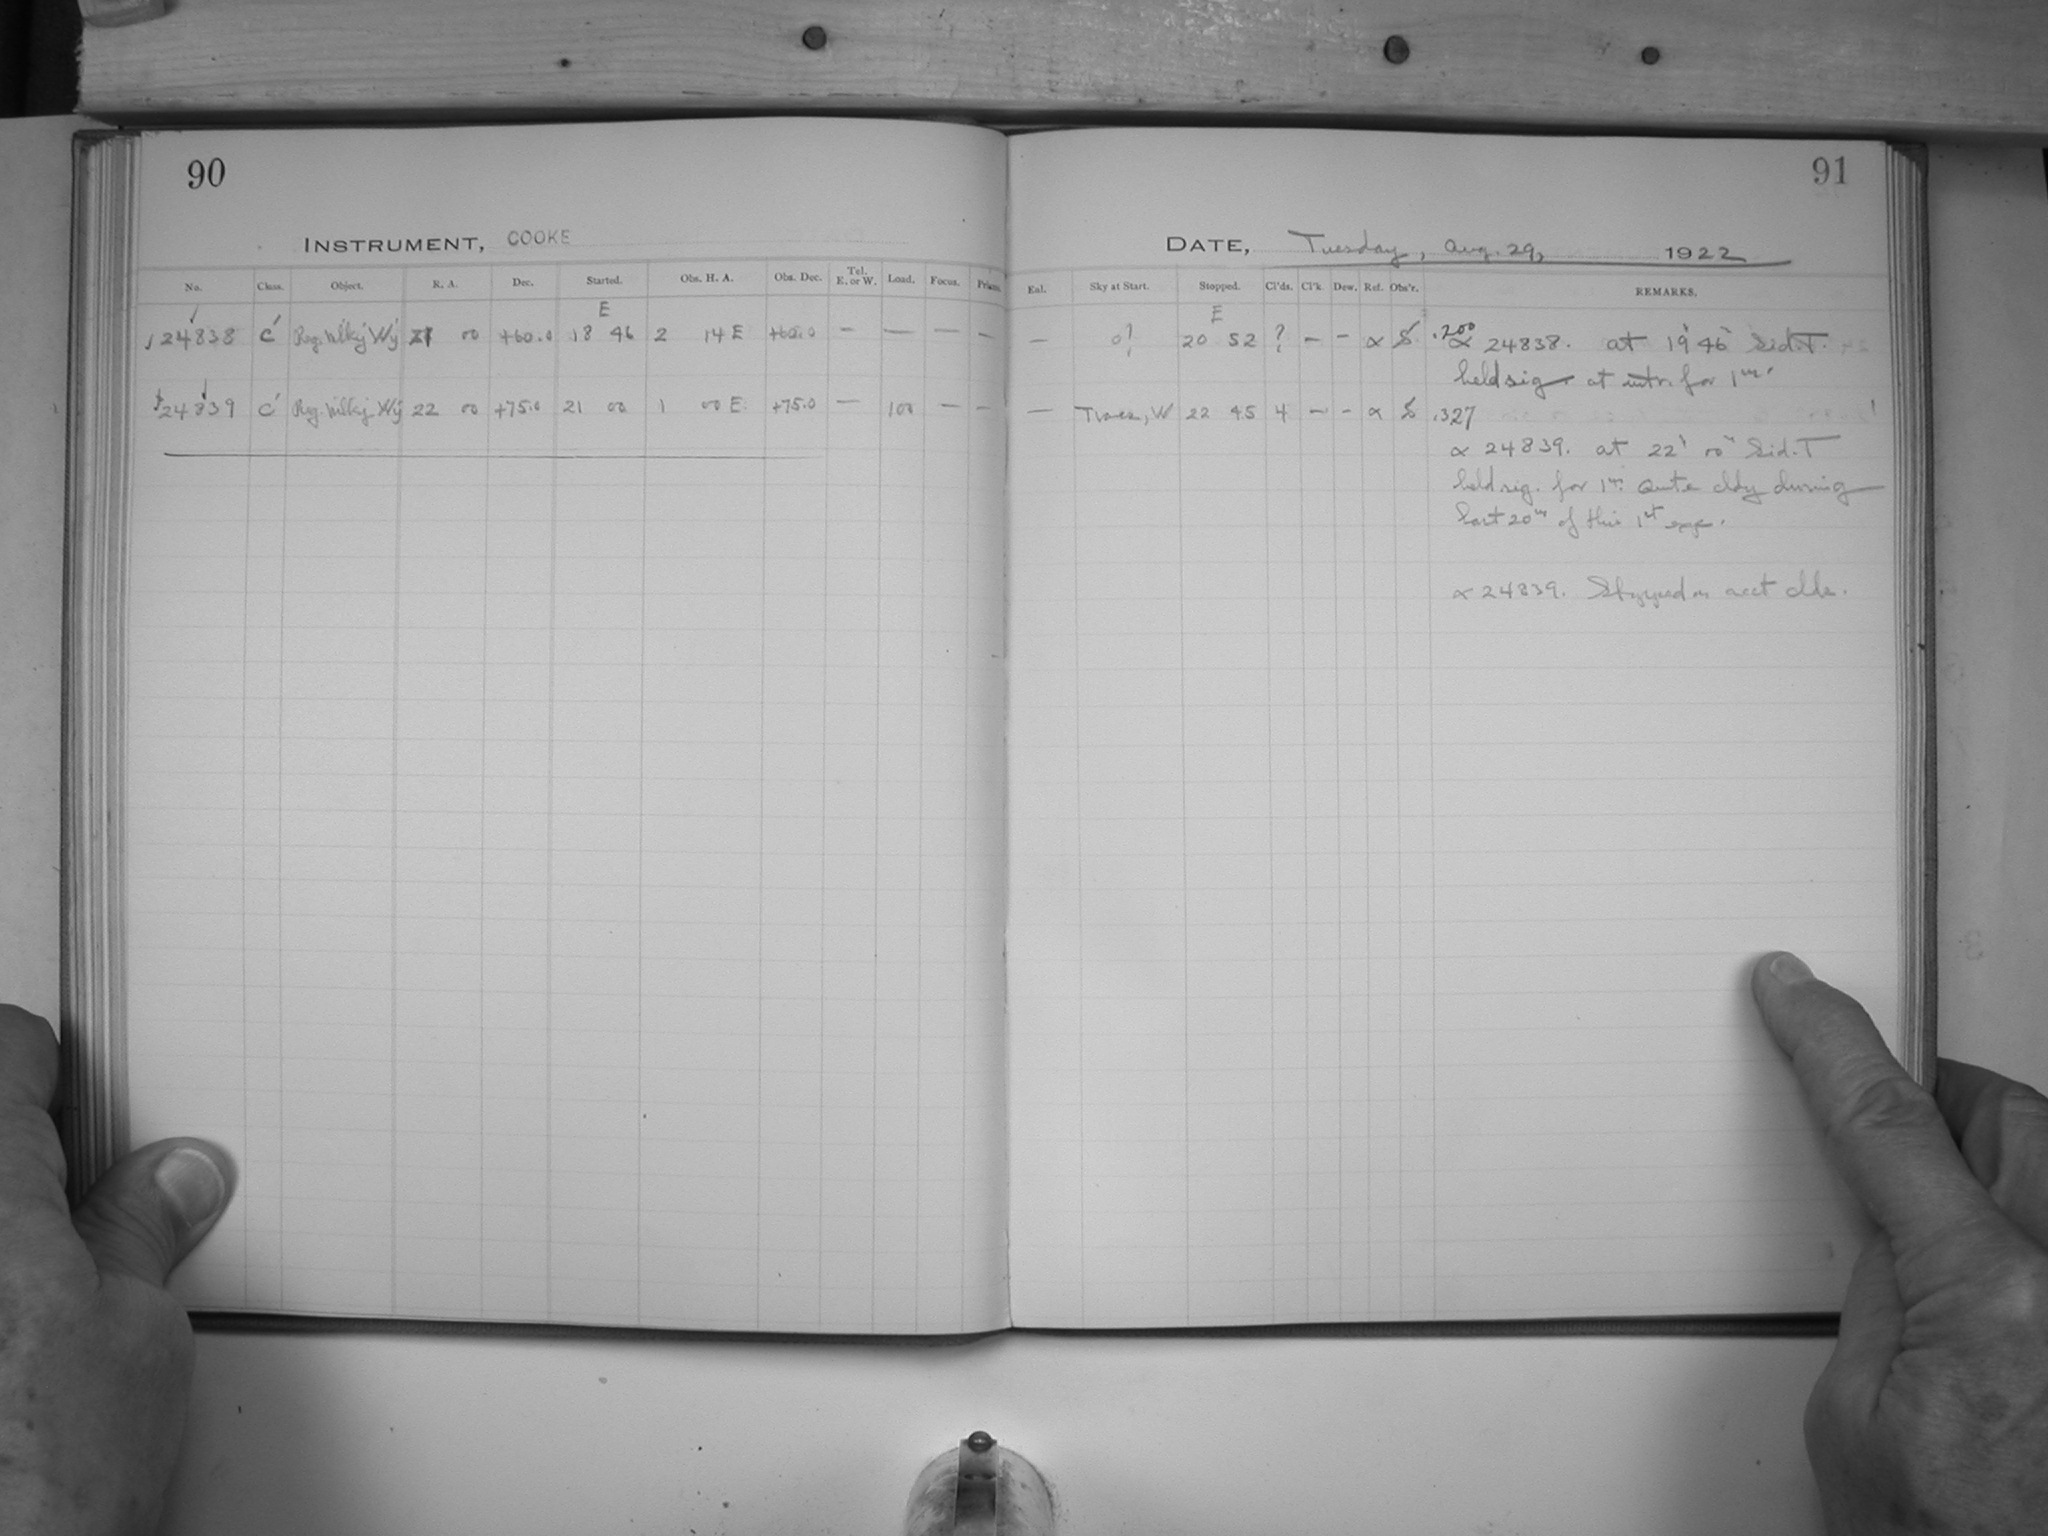 90
INSTRUMENT, COOKE
No. Class. Object. R. A. Dec. Started. Obs. H. A. Obs. Dec. Tel. E. or W. Load. Focus.
E
24838 C' Reg. Milky Wy 21 00 +60.0 18 46 2 14 E +60.0 — — — —
24839 C' Reg. Milky Wy 22 00 +75.0 21 00 1 00 E +75.0 — 100 — —
91
DATE, Tuesday, Aug. 29, 1922
Eal. Sky at Start. Stopped. Cl'ds. Cl'k. Dew. Ref. Obs'r. REMARKS.
E
— 0? 20 52 ? — — α S .200
α 24838. at 19h 46m Sid. T.
held sig. at intr. for 1m.
— Traces, W 22 45 4 — — α S .327
α 24839. at 22h 00m Sid. T
held sig. for 1m. Quite cldy during
last 20m of this 1st exp.
α 24839. Stopped on acct clds.